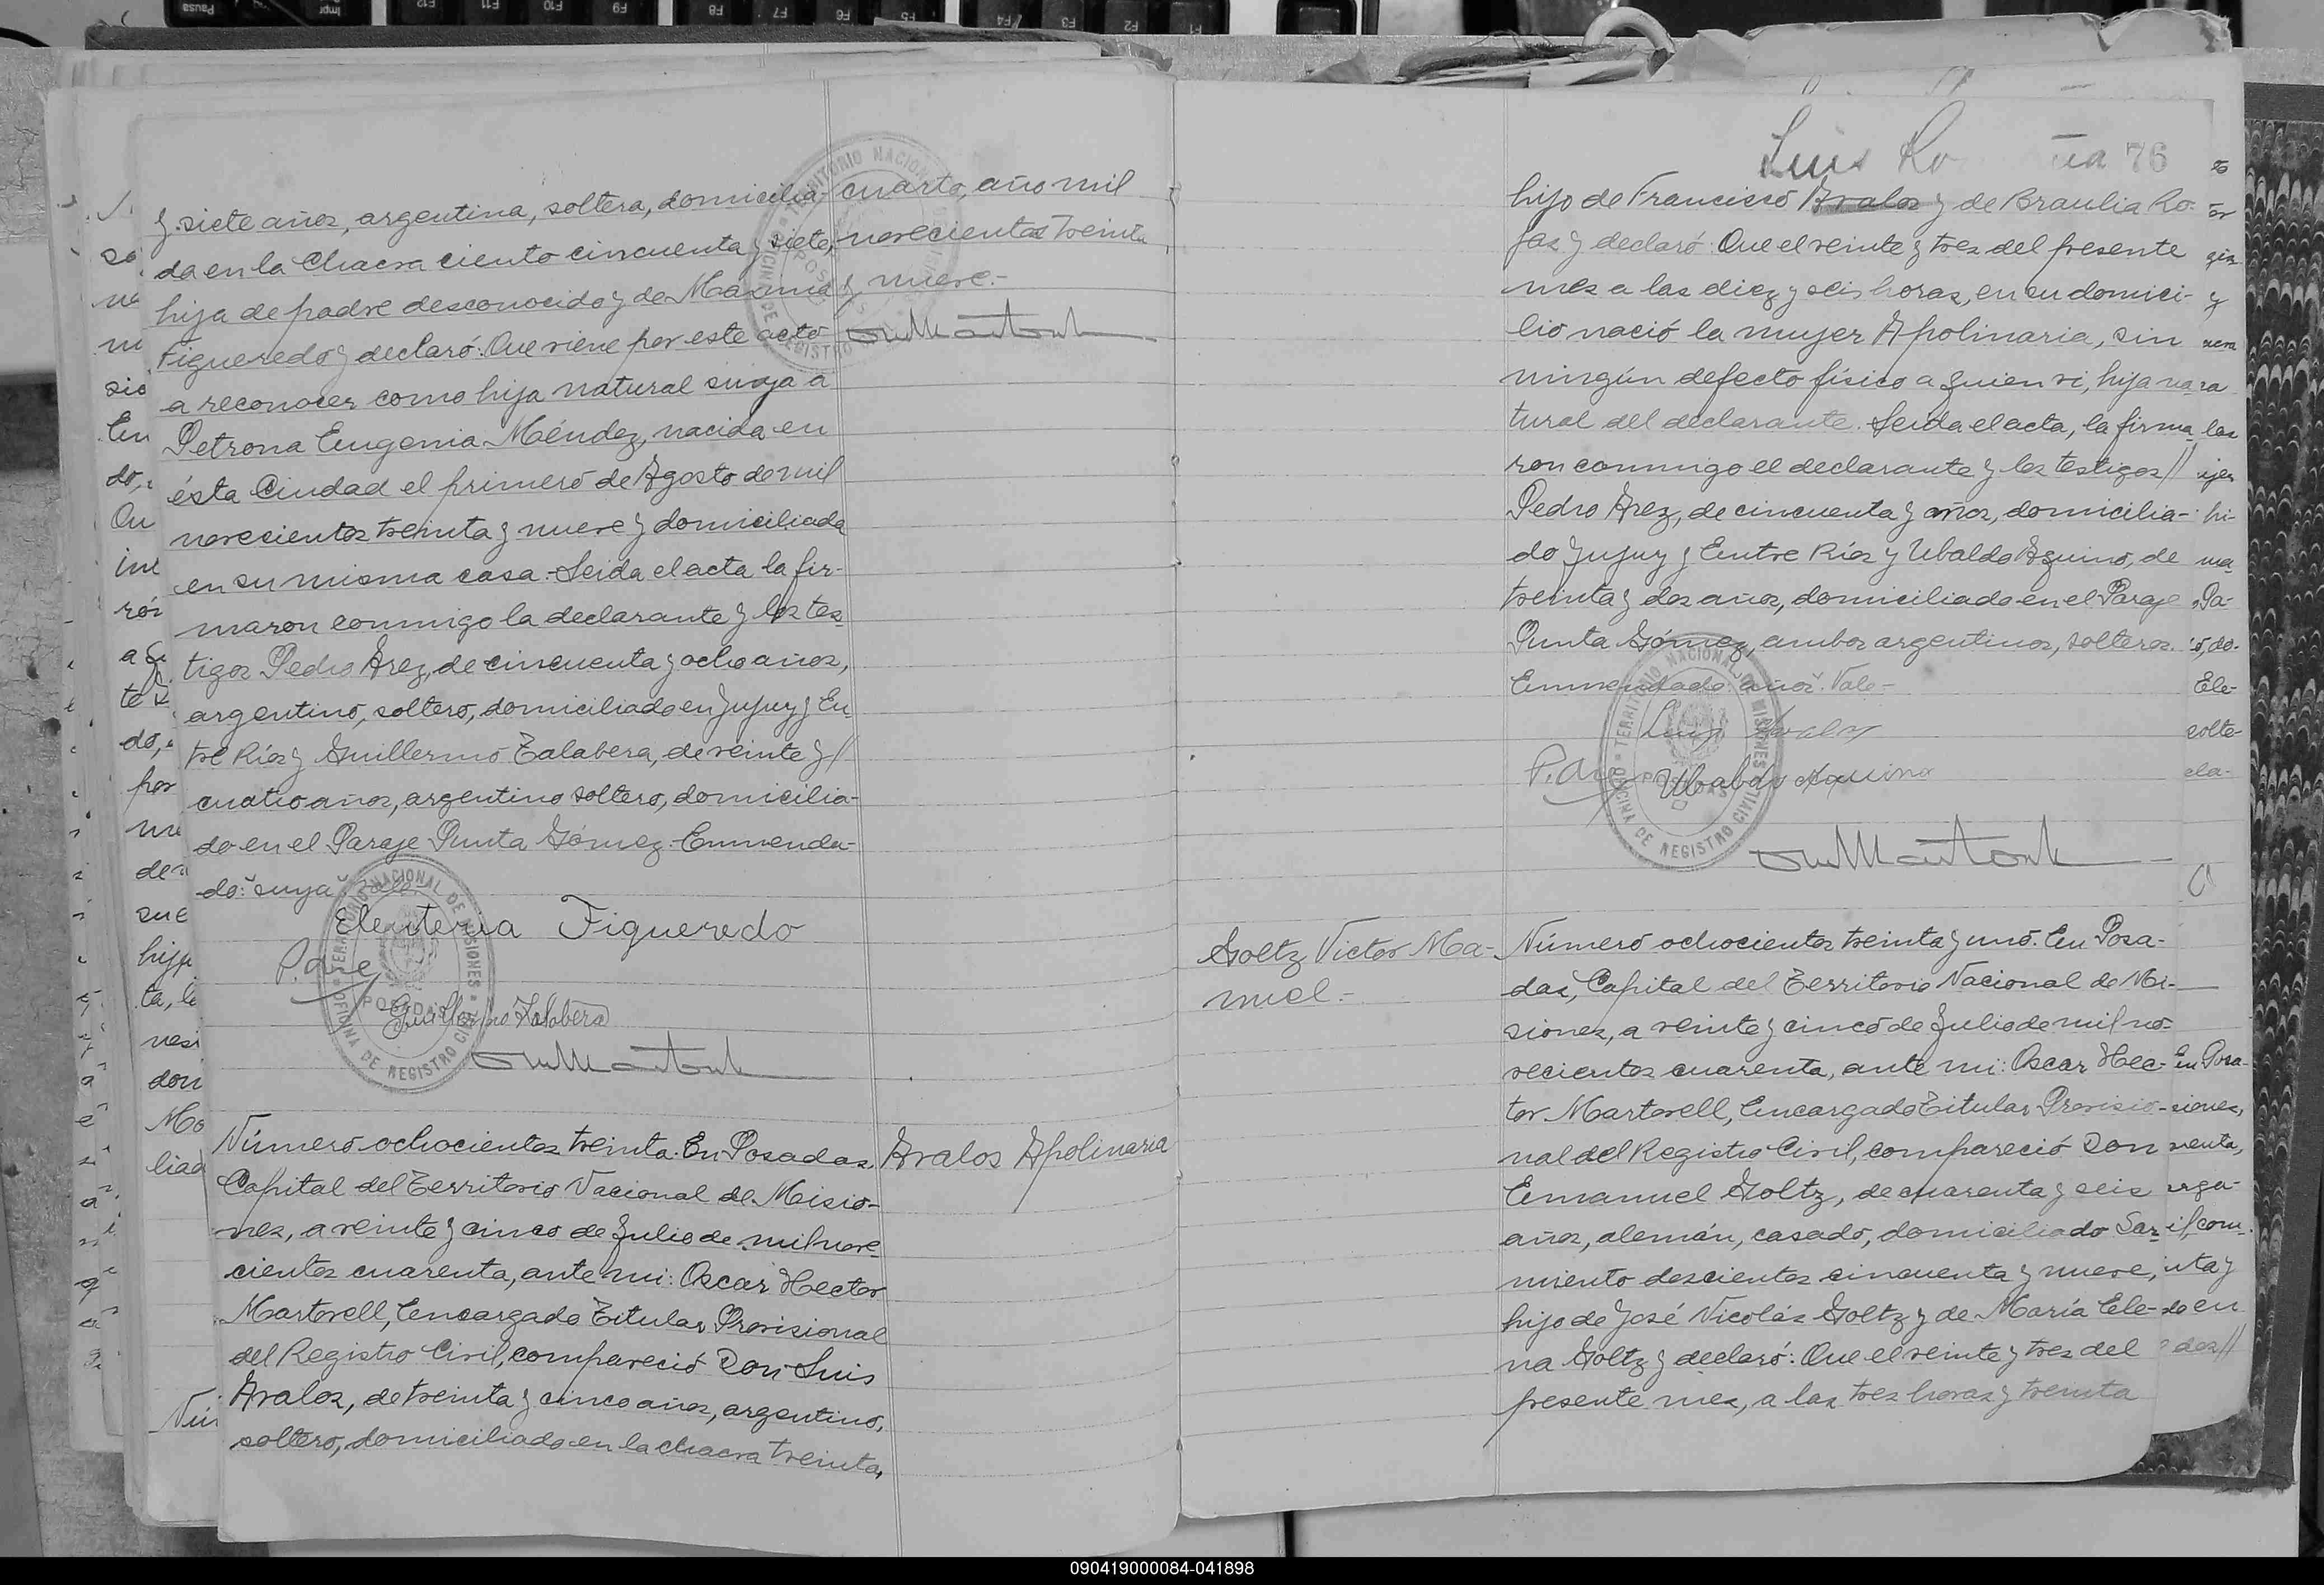 y siete años, argentina, soltera, domicilia-
da en la Chacra ciento cincuenta y siete,
hija de padre desconocido y de Maxima
Figueredo y declaró: Que viene por este acto
a reconocer como hija natural suya a
Petrona Eugenia Méndez, nacida en
ésta Ciudad el primero de Agosto de mil
novecientos treinta y nueve y domiciliada
en su misma casa.- Leida el acta la fir-
maron conmigo la declarante y los tes-
tigos Pedro Arez, de cincuenta y ocho años,
argentino, soltero, domiciliado en Jujuy y En-
tre Ríos y Guillermo Talabera, de veinte y//
cuatro años, argentino soltero, domicilia-
do en el Paraje Punta Gómez.- Enmenda-
do: "suya" vale-
Eleuteria Figueredo
P. Are
Guillermo Talabera
cuarto, año mil
novecientos treinta
y nueve.-
Número ochocientos treinta. En Posadas,
Capital del Territorio Nacional de Misio-
nes, a veinte y cinco de Julio de mil nove-
cientos cuarenta, ante mi: Oscar Hector
Martorell, Encargado Titular Provisional
del Registro Civil, compareció Don Luis
Avalos, de treinta y cinco años, argentino,
soltero, domiciliado en la chacra treinta,
Avalos Apolinaria
76
hijo de Francisco Avalos y de Braulia Ro-
jas y declaró: Que el veinte y tres del presente
mes a las diez y seis horas, en su domici-
lio nació la mujer Apolinaria, sin
ningún defecto físico a quien vi, hija na-
tural del declarante. Leida el acta, la firma-
ron conmigo el declarante y los testigos//
Pedro Arez, de cincuenta y años, domicilia-
do Jujuy y Entre Ríos y Ubaldo Aquino, de
treinta y dos años, domiciliado en el Paraje
Punta Gómez, ambos argentinos, solteros.
Enmendado: "años". Vale-
Luis Avalos
P. Are Ubaldo Aquino
TERRITORIO NACIONAL DE MISIONES
OFICINA DE REGISTRO CIVIL
POSADAS
Goltz Victor Ma-
nuel.-
Número ochocientos treinta y uno. En Posa-
das, Capital del Territorio Nacional de Mi-
siones, a veinte y cinco de Julio de mil no-
vecientos cuarenta, ante mi: Oscar Hec-
tor Martorell, Encargado Titular Provisio-
nal del Registro Civil, compareció Don
Emanuel Goltz, de cuarenta y seis
años, alemán, casado, domiciliado Sar-
miento doscientos cincuenta y nueve,
hijo de José Nicolás Goltz y de María Ele-
na Goltz y declaró: Que el veinte y tres del
presente mes, a las tres horas y treinta
090419000084-041898